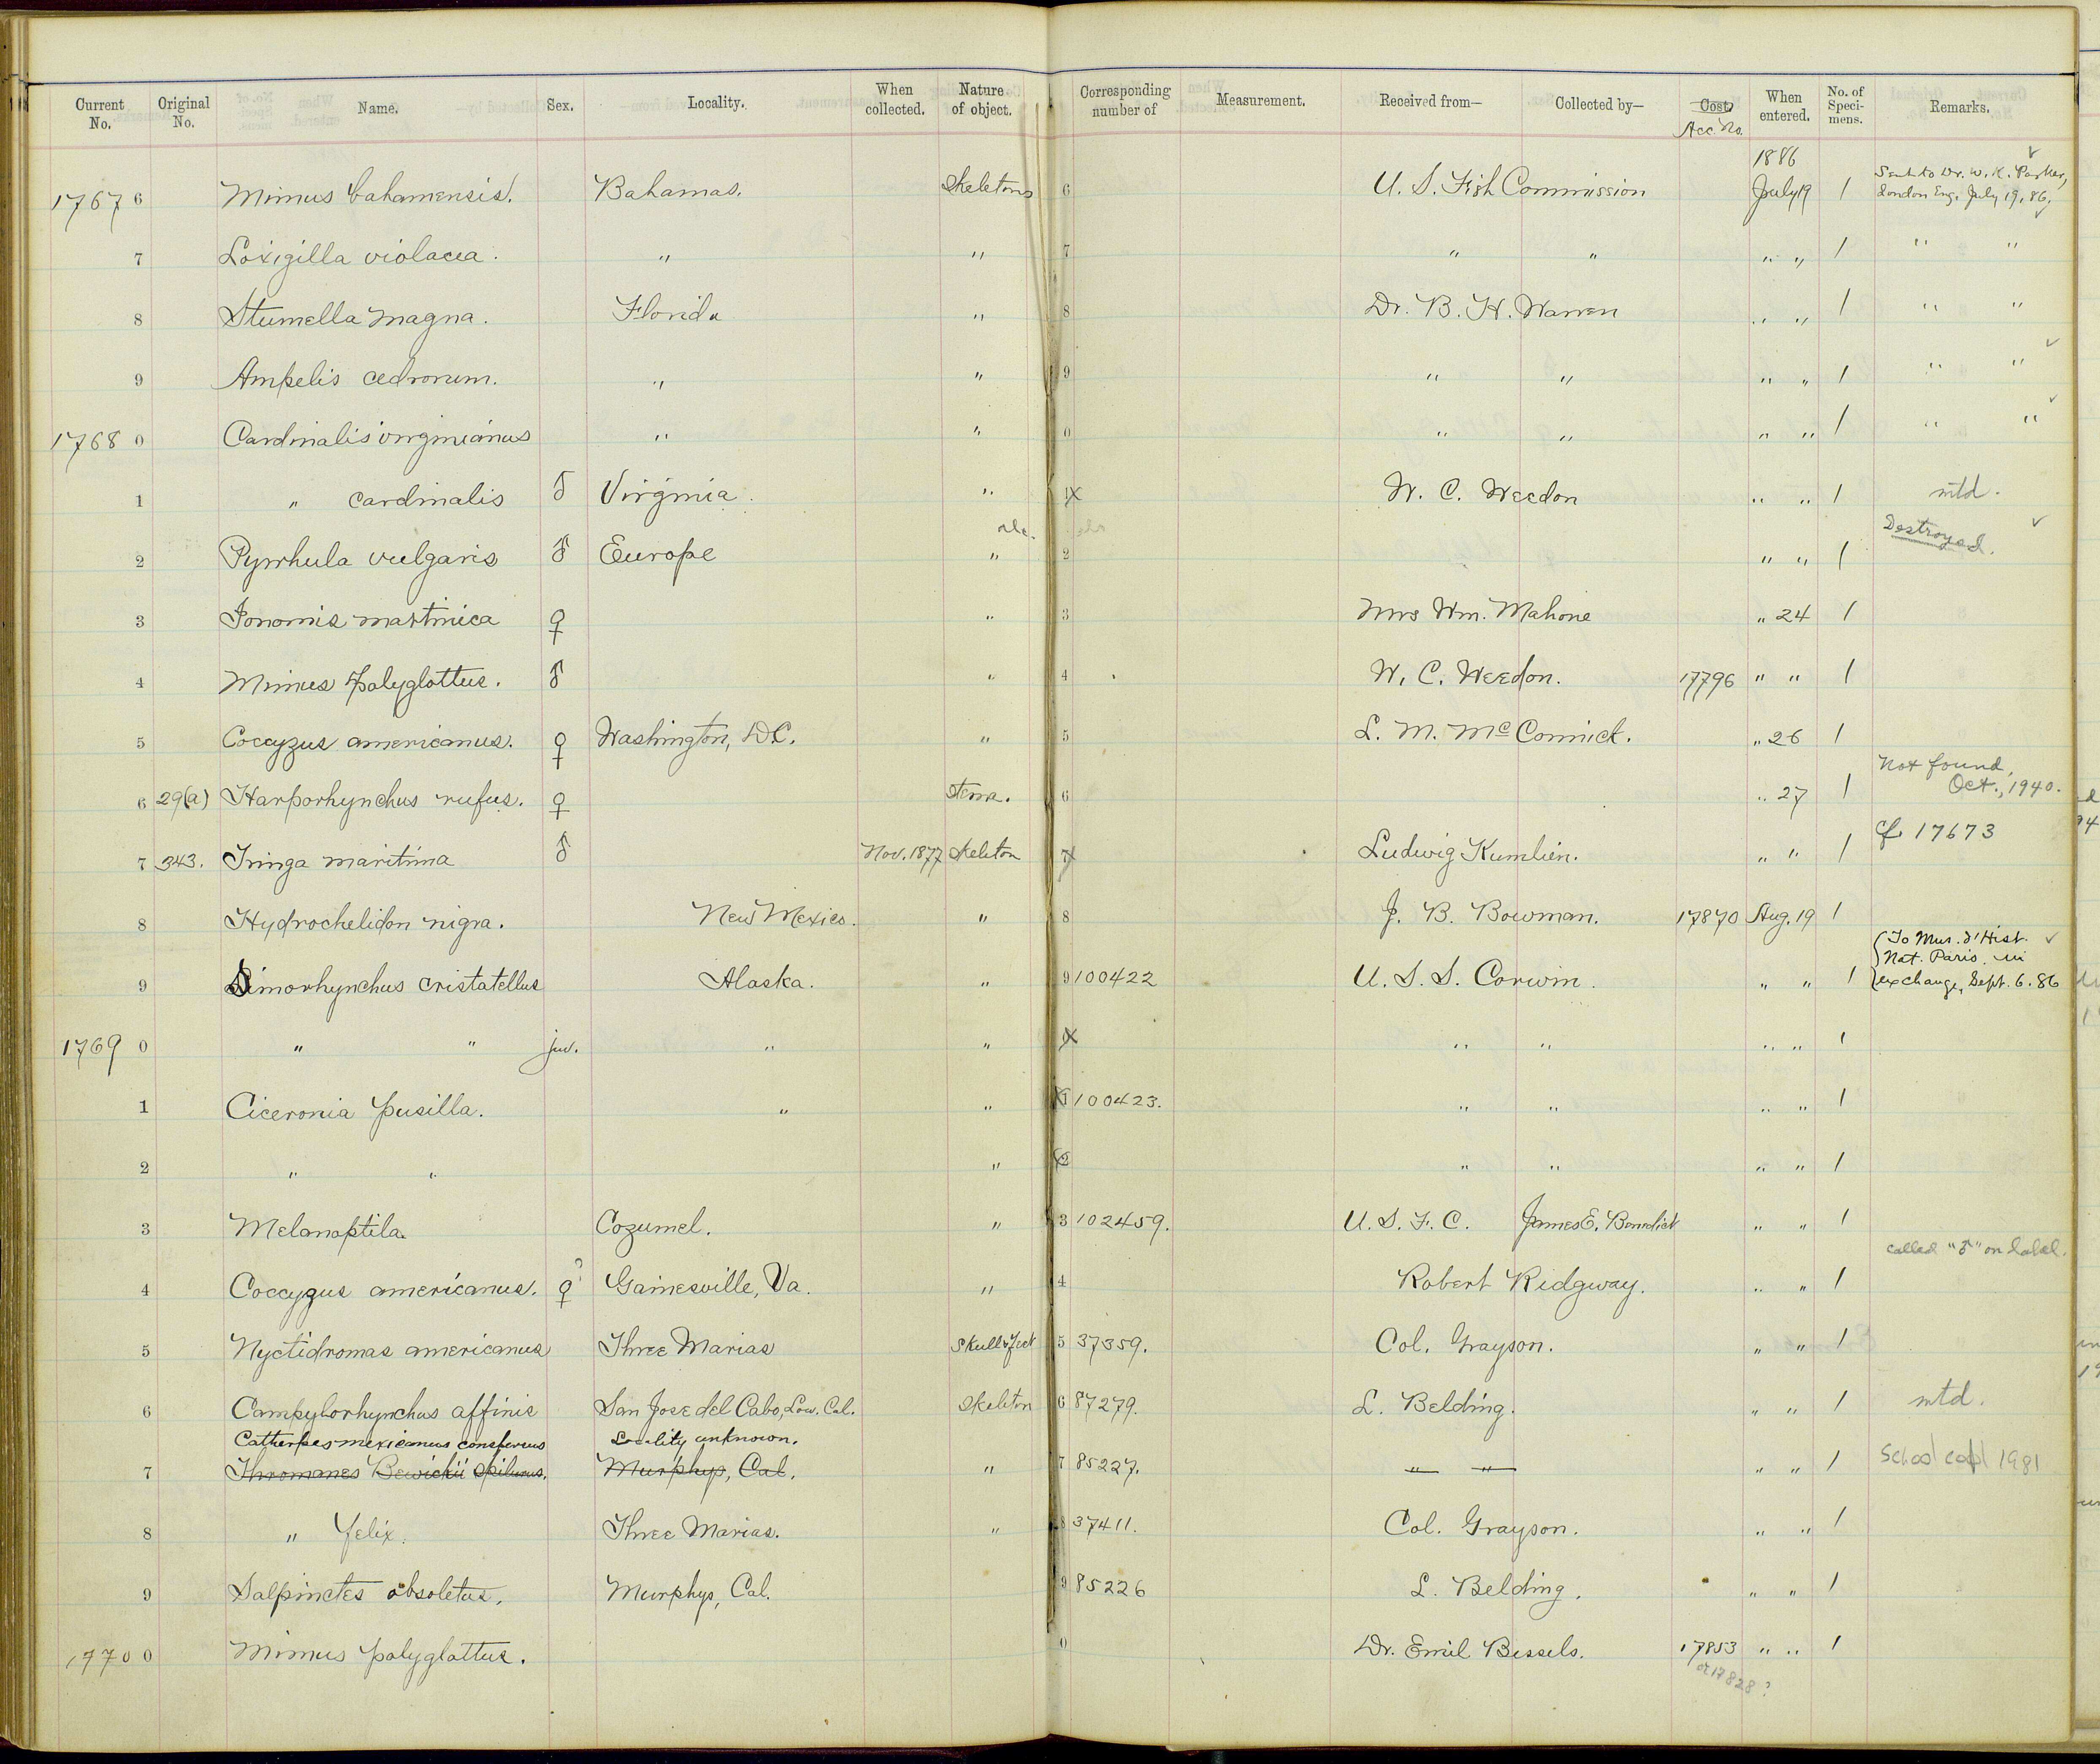 Current No. Original No. Name. Sex. Locality. When collected. Nature of object. Corresponding number of Measurement. Received from— Collected by— Cost. Acc. No. When entered. No. of Specimens. Remarks.
1767 6 Mimus bahamensis. Bahamas. Skeletons 6 U. S. Fish Commission 1886 July 19 1 Sent to Dr. W. K. Parker, London Eng. July 19, 86. ✓
7 Loxigilla violacea. " " 7 " " " " 1 " "
8 Sturnella magna. Florida " 8 Dr. B. H. Warren " " 1 " "
9 Ampelis cedrorum. " " 9 " " " " 1 " " ✓
1768 0 Cardinalis virginianus " " 0 " " " " 1 " " ✓
1 " cardinalis ♂ Virginia. " 1 x W. C. Weedon " " 1 mtd.
2 Pyrrhula vulgaris ♂ Europe " 2 " " 1 Destroyed. ✓
3 Ionornis martinica ♀ " 3 Mrs Wm. Mahone " 24 1
4 Mimus polyglottus. ♂ " 4 W. C. Weedon. 17796 " " 1
5 Coccyzus americanus. ♀ Washington, D.C. " 5 L. M. McCormick. " 26 1
6 29(a) Harporhynchus rufus. ♀ Sterna. 6 " 27 1 Not found, Oct., 1940.
7 343. Tringa maritima ♂ Nov. 1877 Skeleton 7 x Ludwig Kumlien. " " 1 cf. 17673
8 Hydrochelidon nigra. New Mexico. " 8 J. B. Bowman. 17870 Aug. 19 1
9 Simorhynchus cristatellus Alaska. " 9 100422 U. S. S. Corwin. " " 1 To Mus. d'Hist. Nat. Paris. in exchange, Sept. 6. 86 ✓
1769 0 " " juv. " " 0 x " " " " 1
1 Ciceronia pusilla. " " 1 100423. " " " " 1
2 " " " 2 " " " " 1
3 Melanoptila. Cozumel. " 3 102459. U. S. F. C. James E. Benedict " " 1
4 Coccyzus americanus. ♀? Gainesville, Va. " 4 Robert Ridgway. " " 1 called "♂" on label.
5 Nyctidromas americanus Three Marias Skull & feet 5 37359. Col. Grayson. " " 1
6 Campylorhynchus affinis San Jose del Cabo, Low. Cal. Skeleton 6 87279. L. Belding. " " 1 mtd.
Catherpes mexicanus conspersus Locality unknown.
7 Thromanes Bewickii spilurus. Murphys, Cal. " 7 85227. " " " " 1 School coll 1981
8 " felix. Three Marias. " 8 37411. Col. Grayson. " " 1
9 Salpinctes obsoletus. Murphys, Cal. 9 85226 L. Belding. " " 1
1770 0 Mimus polyglottus. 0 Dr. Emil Bessels. 17853 " " 1
or 17828?